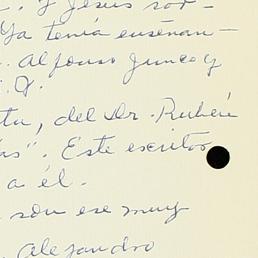 . Y Jesús sor-
Ya tenía enseñan-
. Alfonso Junco y
. J.
ta, del Dr. Rubén
as". Este escritor
a él.
son ese muy
Alejandro